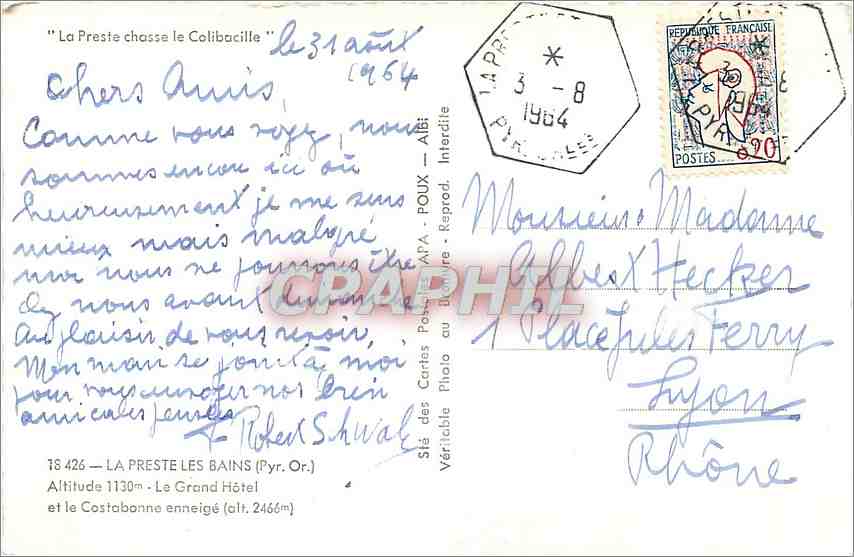 "La Preste chasse le Colibacille"
le 31 août
1964
Chers Amis,
Comme vous voyez, nous
sommes encore ici où
heureusement je me sens
mieux mais malgré
moi nous ne pourrons être
chez nous avant dimanche
Au plaisir de vous revoir,
Mon mari se joint à moi
pour vous envoyer nos bien
amicales pensées
Robert Schwab
18 426 — LA PRESTE LES BAINS (Pyr. Or.)
Altitude 1130m - Le Grand Hôtel
et le Costabonne enneigé (alt. 2466m)
Sté des Cartes Postales APA - POUX — Albi
Véritable Photo au Bromure - Reprod. Interdite
CPARPHIL
LA PRESTE
3 - 8
1964
PYR.
REPUBLIQUE FRANÇAISE
1964
PYR
POSTES 0,20
Monsieur Madame
Albert Hecker
1 Place Jules Ferry
Lyon
Rhône